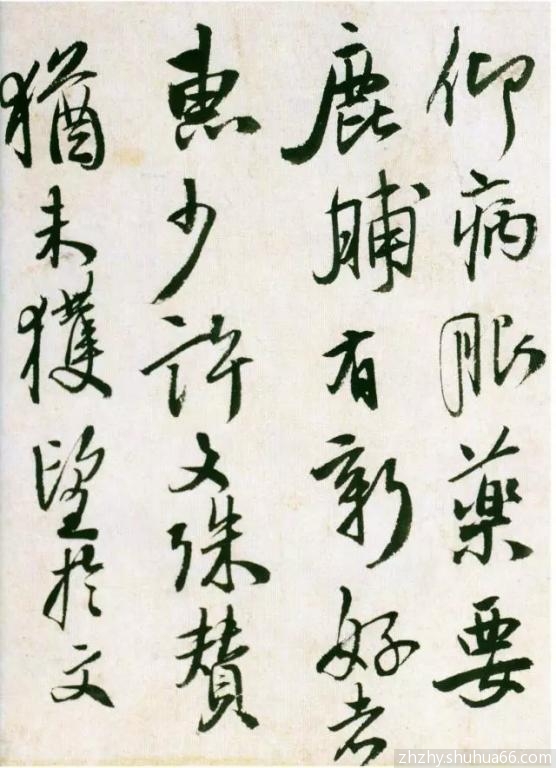 仰病眼藥要
鹿脯有新好者
惠少許文殊賛
猶未獲望於文
zhzhyshuhua66.com